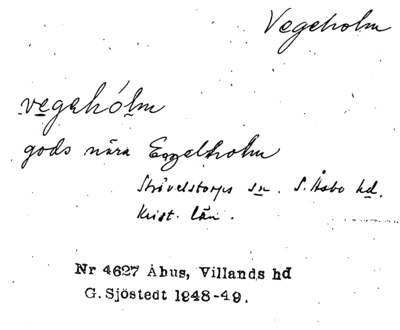 Vegeholm
vegehólm
gods nära Engelholm
Strövelstorps sn. S. Åsbo hd.
Krist. län.
Nr 4627 Åhus, Villands hd
G. Sjöstedt 1948-49.